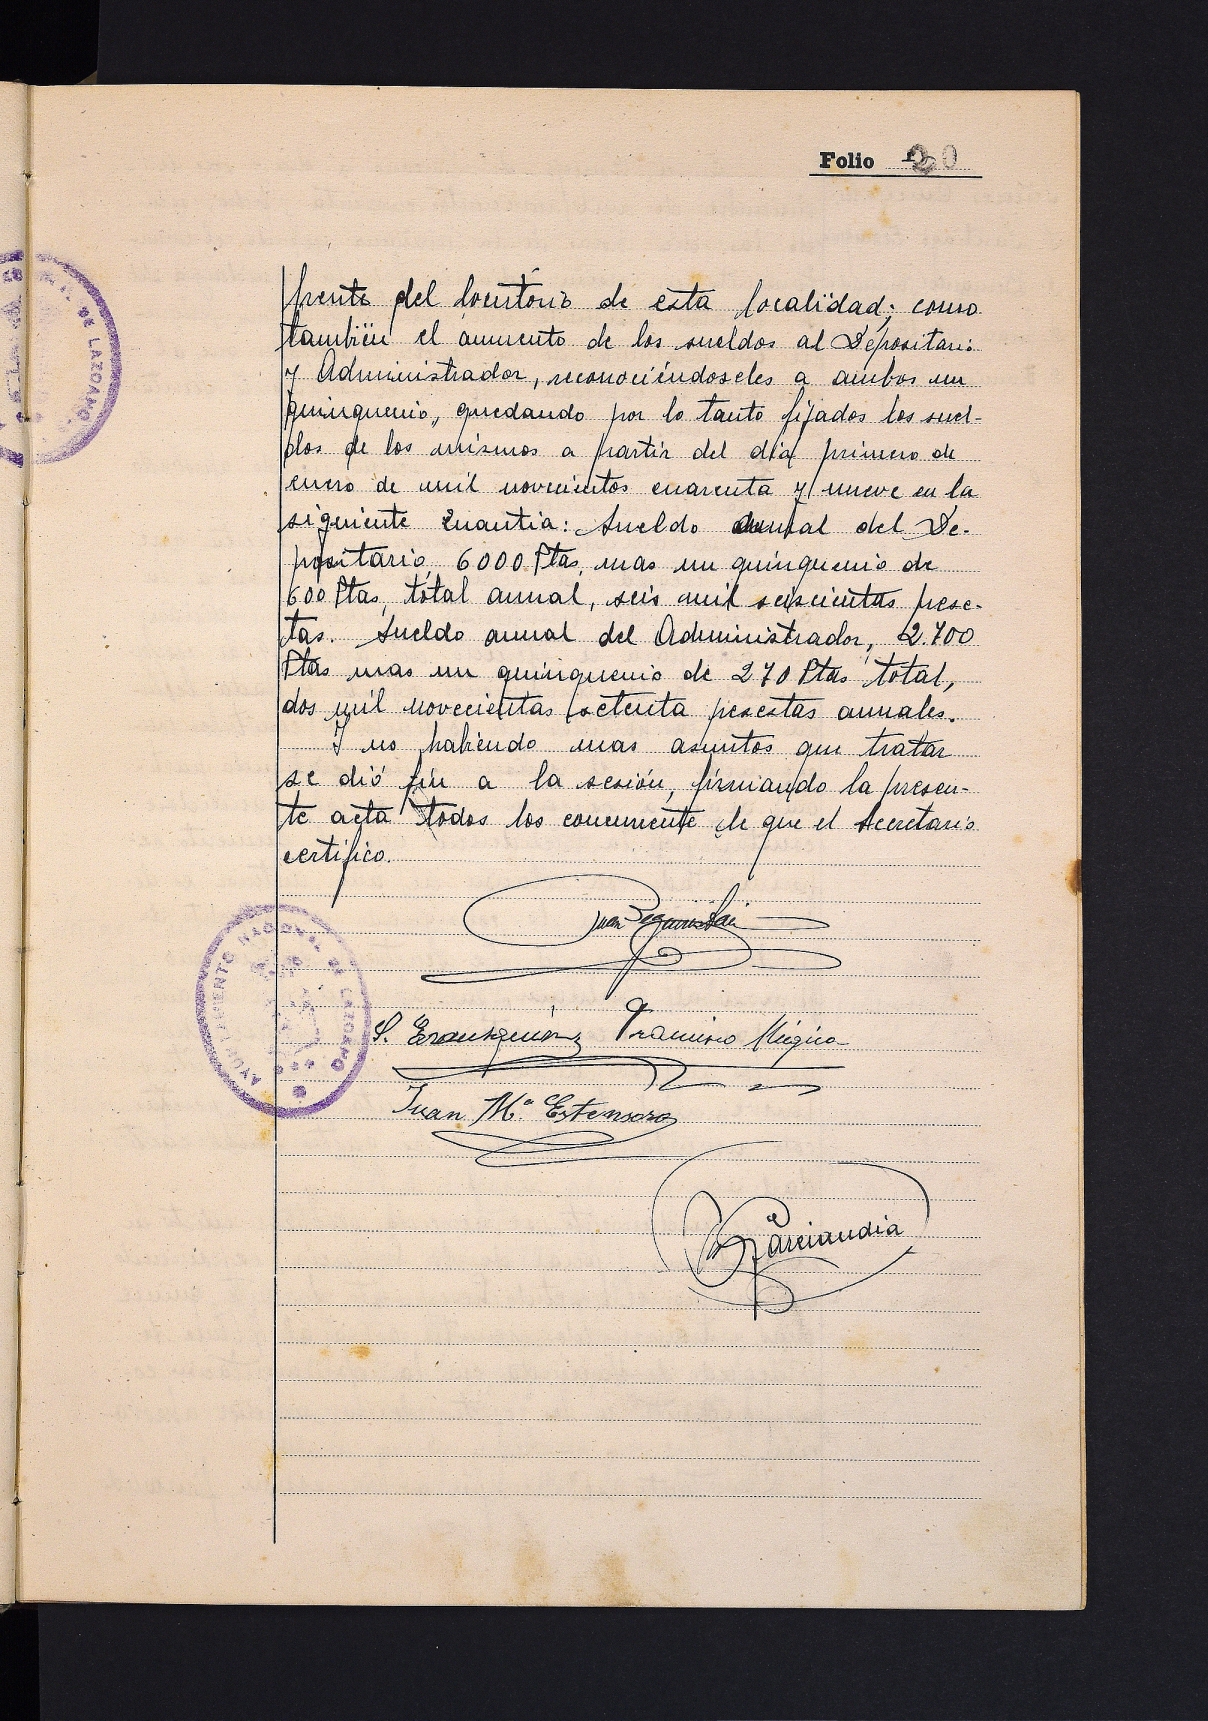 Folio 20
frente del locutorio de esta localidad; como
también el aumento de los sueldos al Depositario
y Administrador, reconociéndoseles a ambos un
quinquenio, quedando por lo tanto fijados los suel-
dos de los mismos a partir del día primero de
enero de mil novecientos cuarenta y nueve en la
siguiente cuantia: Sueldo anual del De-
positario, 6000 Ptas, mas un quinquenio de
600 Ptas, total anual, seis mil seiscientas pese-
tas. Sueldo anual del Administrador, 2.700
Ptas mas un quinquenio de 270 Ptas total,
dos mil novecientas setenta pesestas anuales.
Y no habiendo mas asuntos que tratar
se dió fin a la sesión, firmando la presen-
te acta todos los concurrente de que el Secretario
certifico.
Juan
S. Francisco Múgica
Juan Mª Estensoro
Garciandia
AYUNTAMIENTO NACIONAL DE LAZCANO
DE LAZCANO